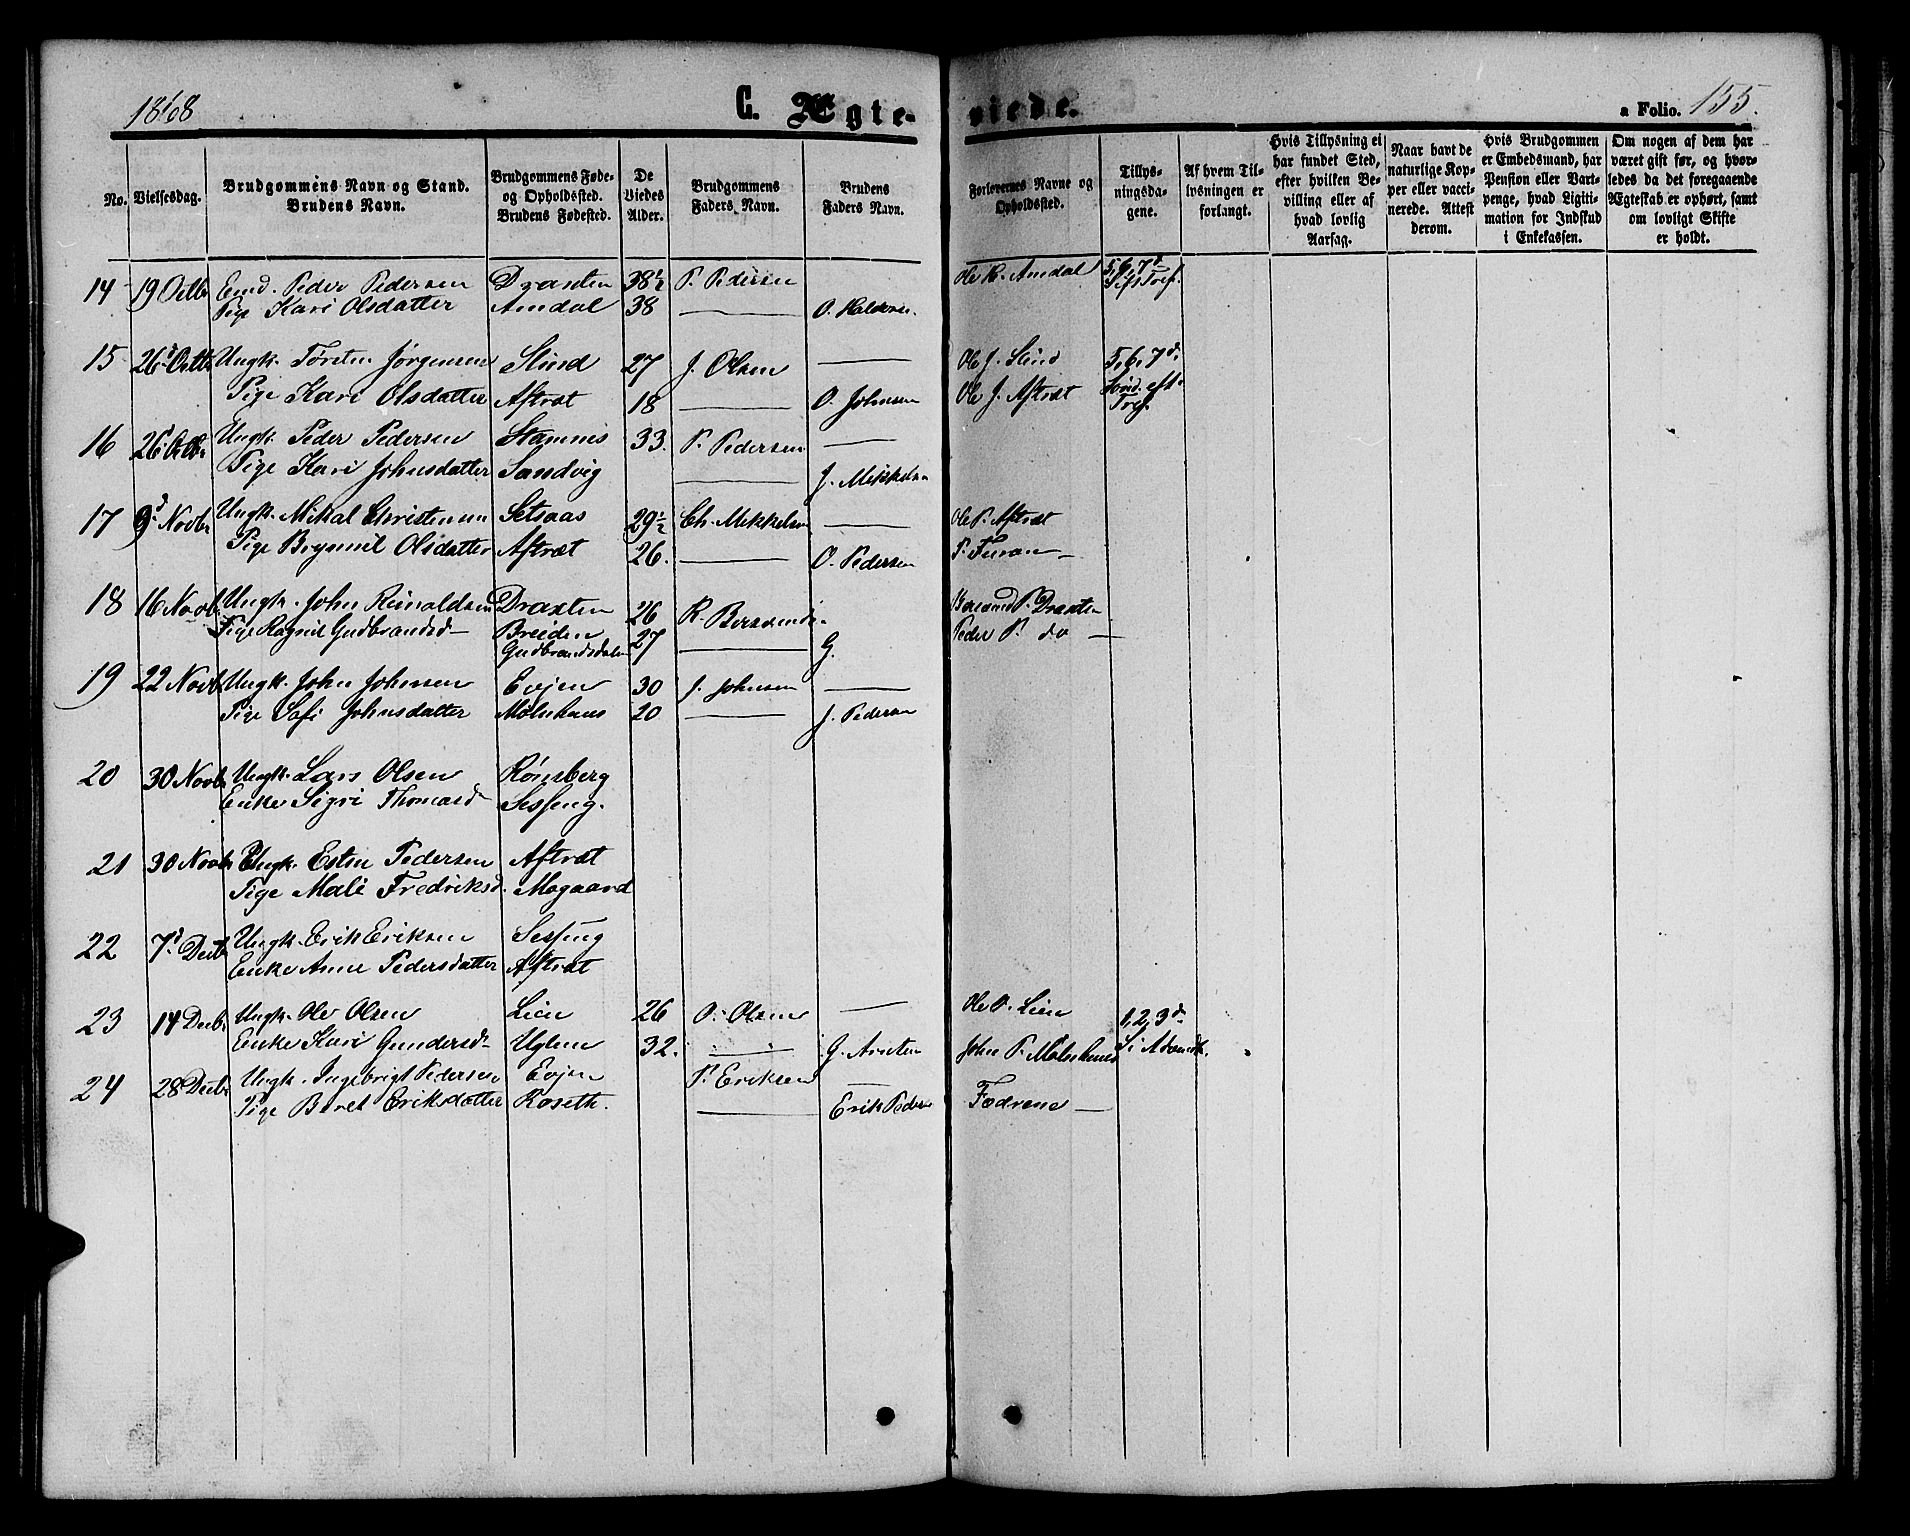 1868
C. Ægte-
viede.
a Folio. 155.
No.
Vielsesdag.
Brudgommens Navn og Stand.
Brudens Navn.
Brudgommens Føde-
og Opholdssted.
Brudens Fødested.
De
Viedes
Alder.
Brudgommens
Faders Navn.
Brudens
Faders Navn.
Forlovernes Navne og
Opholdssted.
Tillys-
ningsda-
gene.
Af hvem Til-
lysningen er
forlangt.
Hvis Tillysning ei
har fundet Sted,
efter hvilken Be-
villing eller af
hvad lovlig
Aarsag.
Naar havt de
naturlige Kop-
per eller vacci-
nerede. Attest
derom.
Hvis Brudgommen
er Embedsmand, har
Pension eller Vart-
penge, hvad Ligiti-
mation for Indskud
i Enkekassen.
Om nogen af dem har
været gift før, og hvor-
ledes da det foregaaende
Ægteskab er ophørt, samt
om lovligt Skifte
er holdt.
14 19 Octbr Emd. Peder Pedersen Draxten 38½ P. Pedersen Ole K. Amdal 5, 6, 7d
Pige Kari Olsdatter Amdal 38 — O. Haldorsen Tref.
15 26d Octb Ungk. Jørgensen Slind 27 J. Olsen — Ole J. Slind 5, 6, 7d
Pige Kari Olsdatter Aftræt 18 — O. Johnsen Ole J. Aftræt Sønd. eft.
Tref.
16 26d Octbr Ungk. Peder Pedersen Stamnes 33. P. Pedersen —
Pige Kari Johnsdatter Sandvig — J. Mikkelsen
17 9d Novbr Ungk. Mikal Christensen Setsaas 29½ Ch. Mikkelsen — Ole P. Aftræt
Pige Brynnil Olsdatter Aftræt 26. — O. Pedersen P. Furan —
18 16 Novb Ungk. John Reinaldsen Draxten 26 R. Bersvends. Bersvend P. Draxten
Pige Ragnil Gudbrandsd— Breiden 27 — G. Peder P. do —
Gudbrandsdalen
19 22 Novb Ungk. John Johnsen Evjen 30 J. Johnsen —
Pige Sofi Johnsdatter Molnhaus 20 — J. Pedersen
20 30 Novb Ungk. Lars Olsen Rønsberg
Enke Sigri Thomasd Sesseng.
21 30 Novbr Ungk. Esten Pedersen Aftræt
Pige Mali Fredriksd. Mogaard
22 7d Decb Ungk. Erik Eriksen Sesseng
Enke Anne Pedersdatter Aftræt
23 14 Decbr Ungk. Ole Olsen Lien 26 O. Olsen — Ole O. Lien 1, 2, 3d
Enke Kari Gundersd Uglem 32. — G. John P. Molnhaus S. i Advendt.
24 28 Decbr Ungk. Ingebrigt Pedersen Evjen P. Eriksen —
Pige Beret Eriksdatter Roseth. — Erik Peders Fædrene —